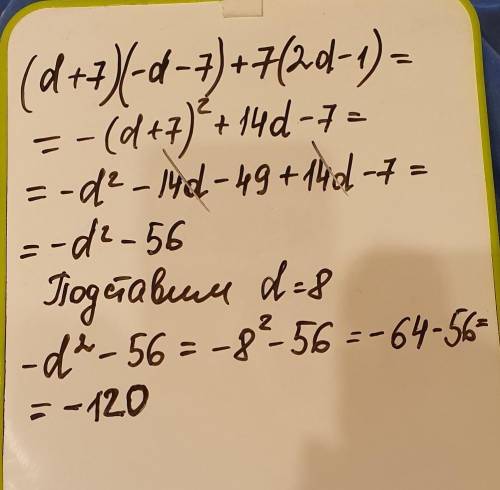 (d+7)(-d-7)+7(2d-1)=
= -(d+7)²+14d-7=
= -d²-14d-49+14d-7=
= -d²-56
Подставим d=8
-d²-56 = -8²-56 = -64-56=
= -120